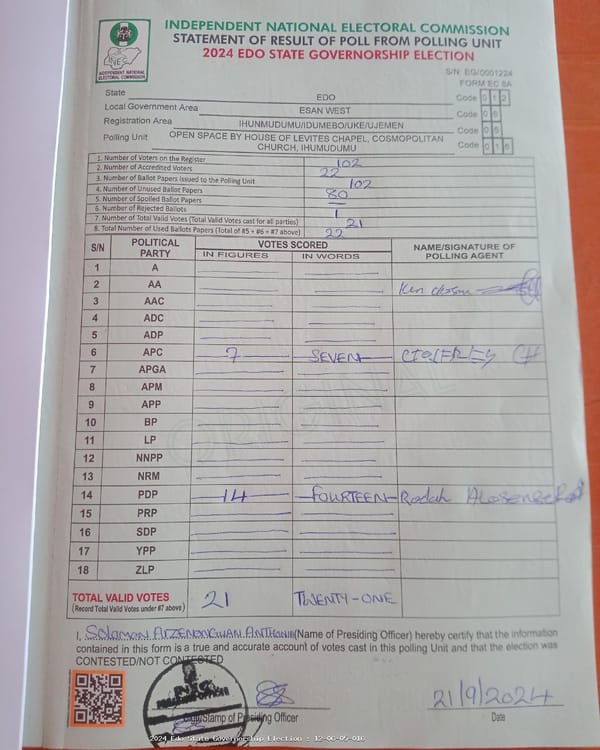 INDEPENDENT NATIONAL ELECTORAL COMMISSION
STATEMENT OF RESULT OF POLL FROM POLLING UNIT
2024 EDO STATE GOVERNORSHIP ELECTION
INEC
INDEPENDENT NATIONAL ELECTORAL COMMISSION
S/N: EG/0001224
FORM EC 8A
State EDO Code 0 1 2
Local Government Area ESAN WEST Code 0 6
Registration Area IHUNMUDUMU/IDUMEBO/UKE/UJEMEN Code 0 5
Polling Unit OPEN SPACE BY HOUSE OF LEVITES CHAPEL, COSMOPOLITAN CHURCH, IHUMUDUMU Code 0 1 6
1. Number of Voters on the Register 102
2. Number of Accredited Voters 22
3. Number of Ballot Papers Issued to the Polling Unit 102
4. Number of Unused Ballot Papers 80
5. Number of Spoiled Ballot Papers —
6. Number of Rejected Ballots 1
7. Number of Total Valid Votes (Total Valid Votes cast for all parties) 21
8. Total Number of Used Ballots Papers (Total of #5 + #6 + #7 above) 22
S/N POLITICAL PARTY VOTES SCORED NAME/SIGNATURE OF POLLING AGENT
IN FIGURES IN WORDS
1 A
2 AA Ken
3 AAC
4 ADC
5 ADP
6 APC 7 SEVEN
7 APGA
8 APM
9 APP
10 BP
11 LP
12 NNPP
13 NRM
14 PDP 14 FOURTEEN Rodah
15 PRP
16 SDP
17 YPP
18 ZLP
TOTAL VALID VOTES 21 TWENTY-ONE
(Record Total Valid Votes under #7 above)
ORIGINAL
I, Solomon ANTHONIA (Name of Presiding Officer) hereby certify that the information
contained in this form is a true and accurate account of votes cast in this polling Unit and that the election was
CONTESTED/NOT CONTESTED
INEC
PRESIDING OFFICER
Stamp of Presiding Officer
21/9/2024
Date
2024 Edo State Governorship Election : 12-06-05-016